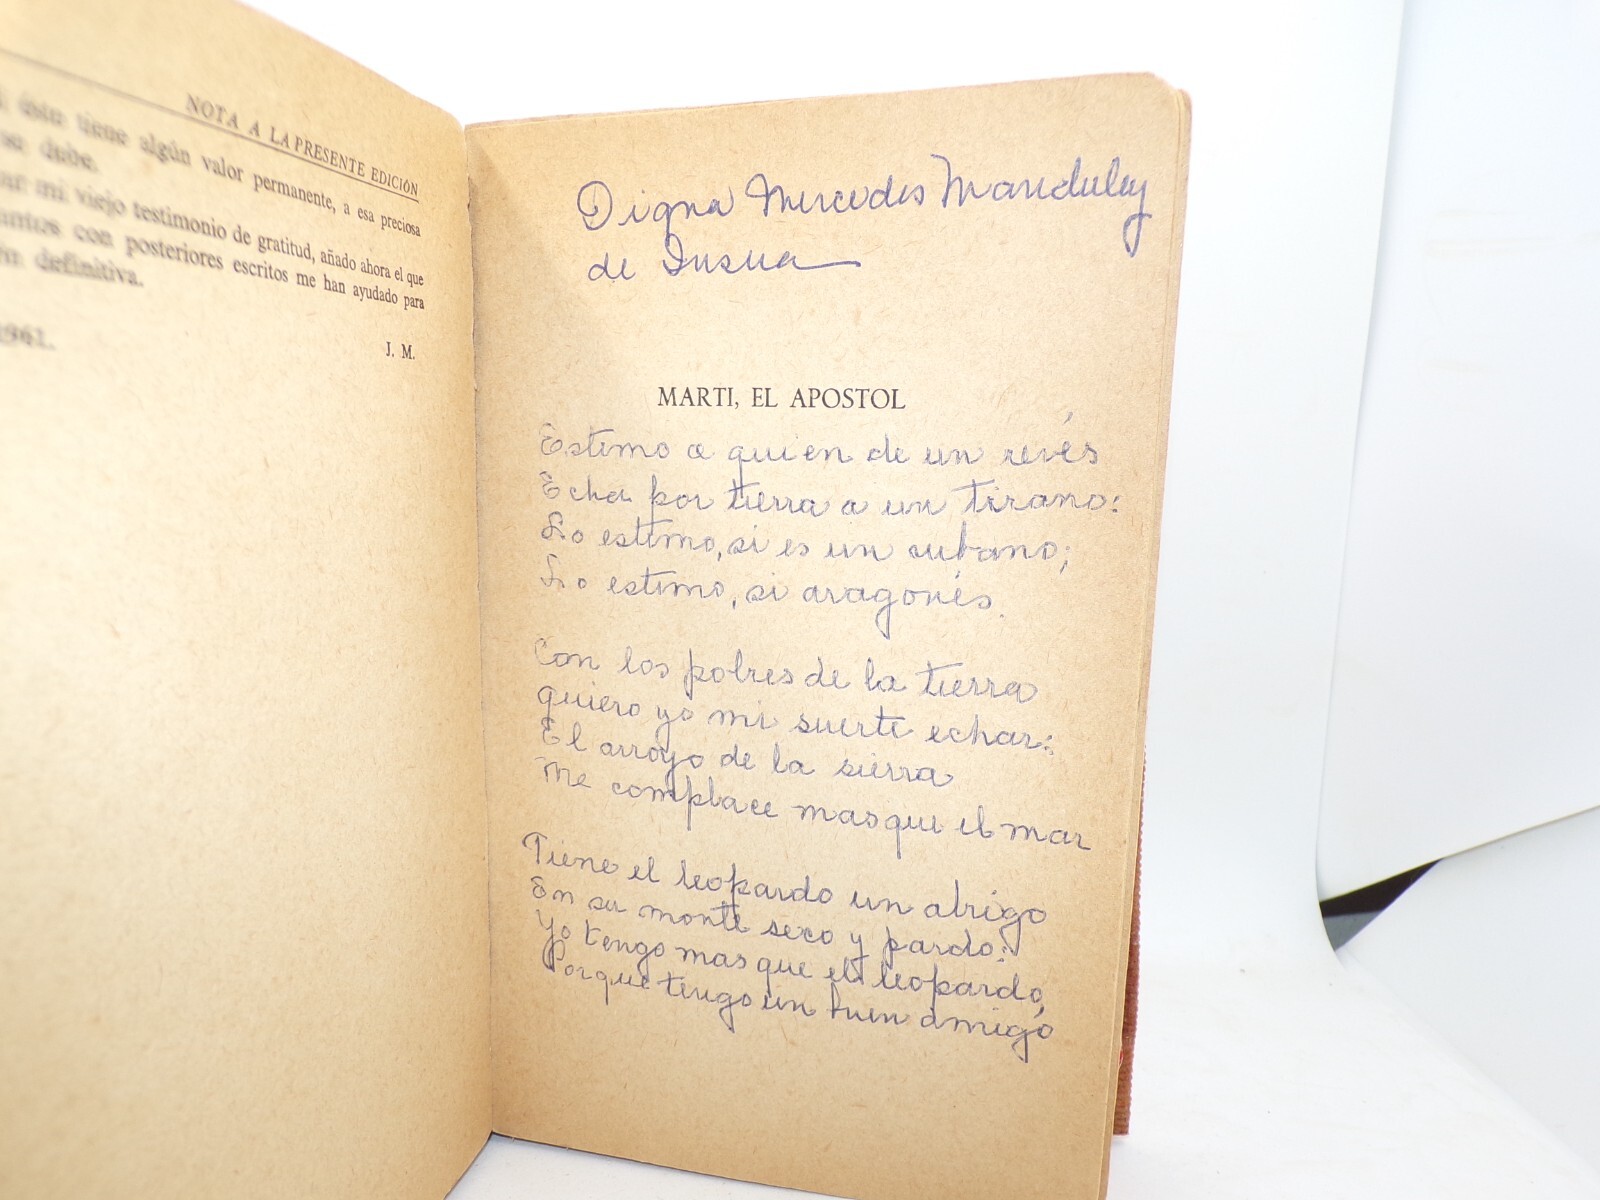 NOTA A LA PRESENTE EDICIÓN
ésta tiene algún valor permanente, a esa preciosa
se debe.
mi viejo testimonio de gratitud, añado ahora el que
con posteriores escritos me han ayudado para
definitiva.
1961.
J. M.
Digna Mercedes Manduley
de Insua
MARTI, EL APOSTOL
Estimo a quien de un revés
Echa por tierra a un tirano:
Lo estimo, si es un cubano;
Lo estimo, si aragonés.
Con los pobres de la tierra
quiero yo mi suerte echar:
El arroyo de la sierra
Me complace mas que el mar
Tiene el leopardo un abrigo
En su monte seco y pardo:
Yo tengo mas que el leopardo,
Porque tengo un buen amigo